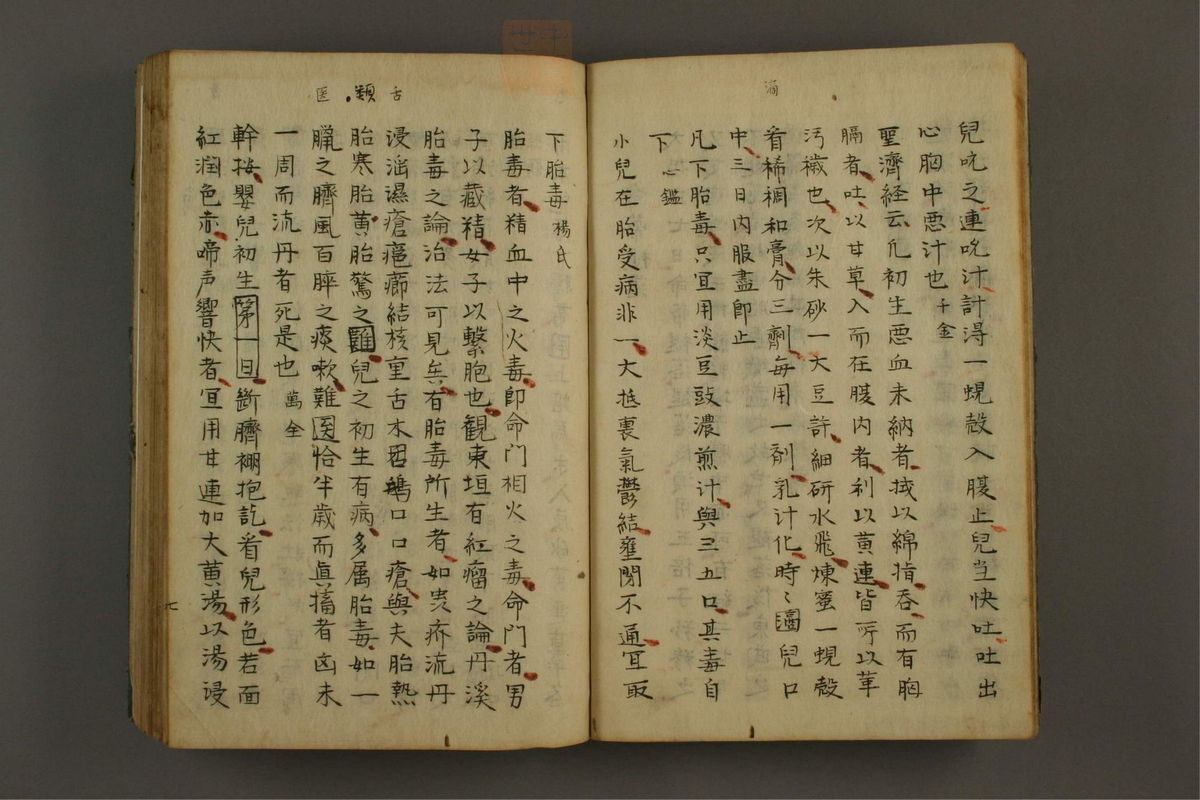 滴
兒吮之連吮汁計得一蜆殼入腹止兒当快吐吐出
心胸中悪汁也千金
聖濟経云凢初生悪血未納者拭以綿指呑而有胸
膈者吐以甘草入而在腹内者利以黄連皆所以革
汚穢也次以朱砂一大豆許細研水飛煉蜜一蜆殼
看稀稠和膏分三劑毎用一剤乳汁化時〻滴兒口
中三日内服盡即止
凡下胎毒只宜用淡豆豉濃煎汁與三五口其毒自
下心鑑
小兒在胎受病非一大抵裏氣鬱結壅閉不通宜取
舌 類 医
下胎毒楊氏
胎毒者精血中之火毒即命門相火之毒命門者男
子以藏精女子以繫胞也観東垣有紅瘤之論丹溪
胎毒之論治法可見矣有胎毒所生者如虫疥流丹
浸滛濕瘡痬癤結核重舌木舌鵝口口瘡與夫胎熱
胎寒胎黄胎驚之類兒之初生有病多属胎毒如一
臘之臍風百晬之痰嗽難医恰半歳而眞搐者凶未
一周而流丹者死是也萬全
幹按嬰兒初生第一旦断臍襁抱訖看兒形色若面
紅潤色赤啼声響快者宜用甘連加大黄湯以湯浸
七